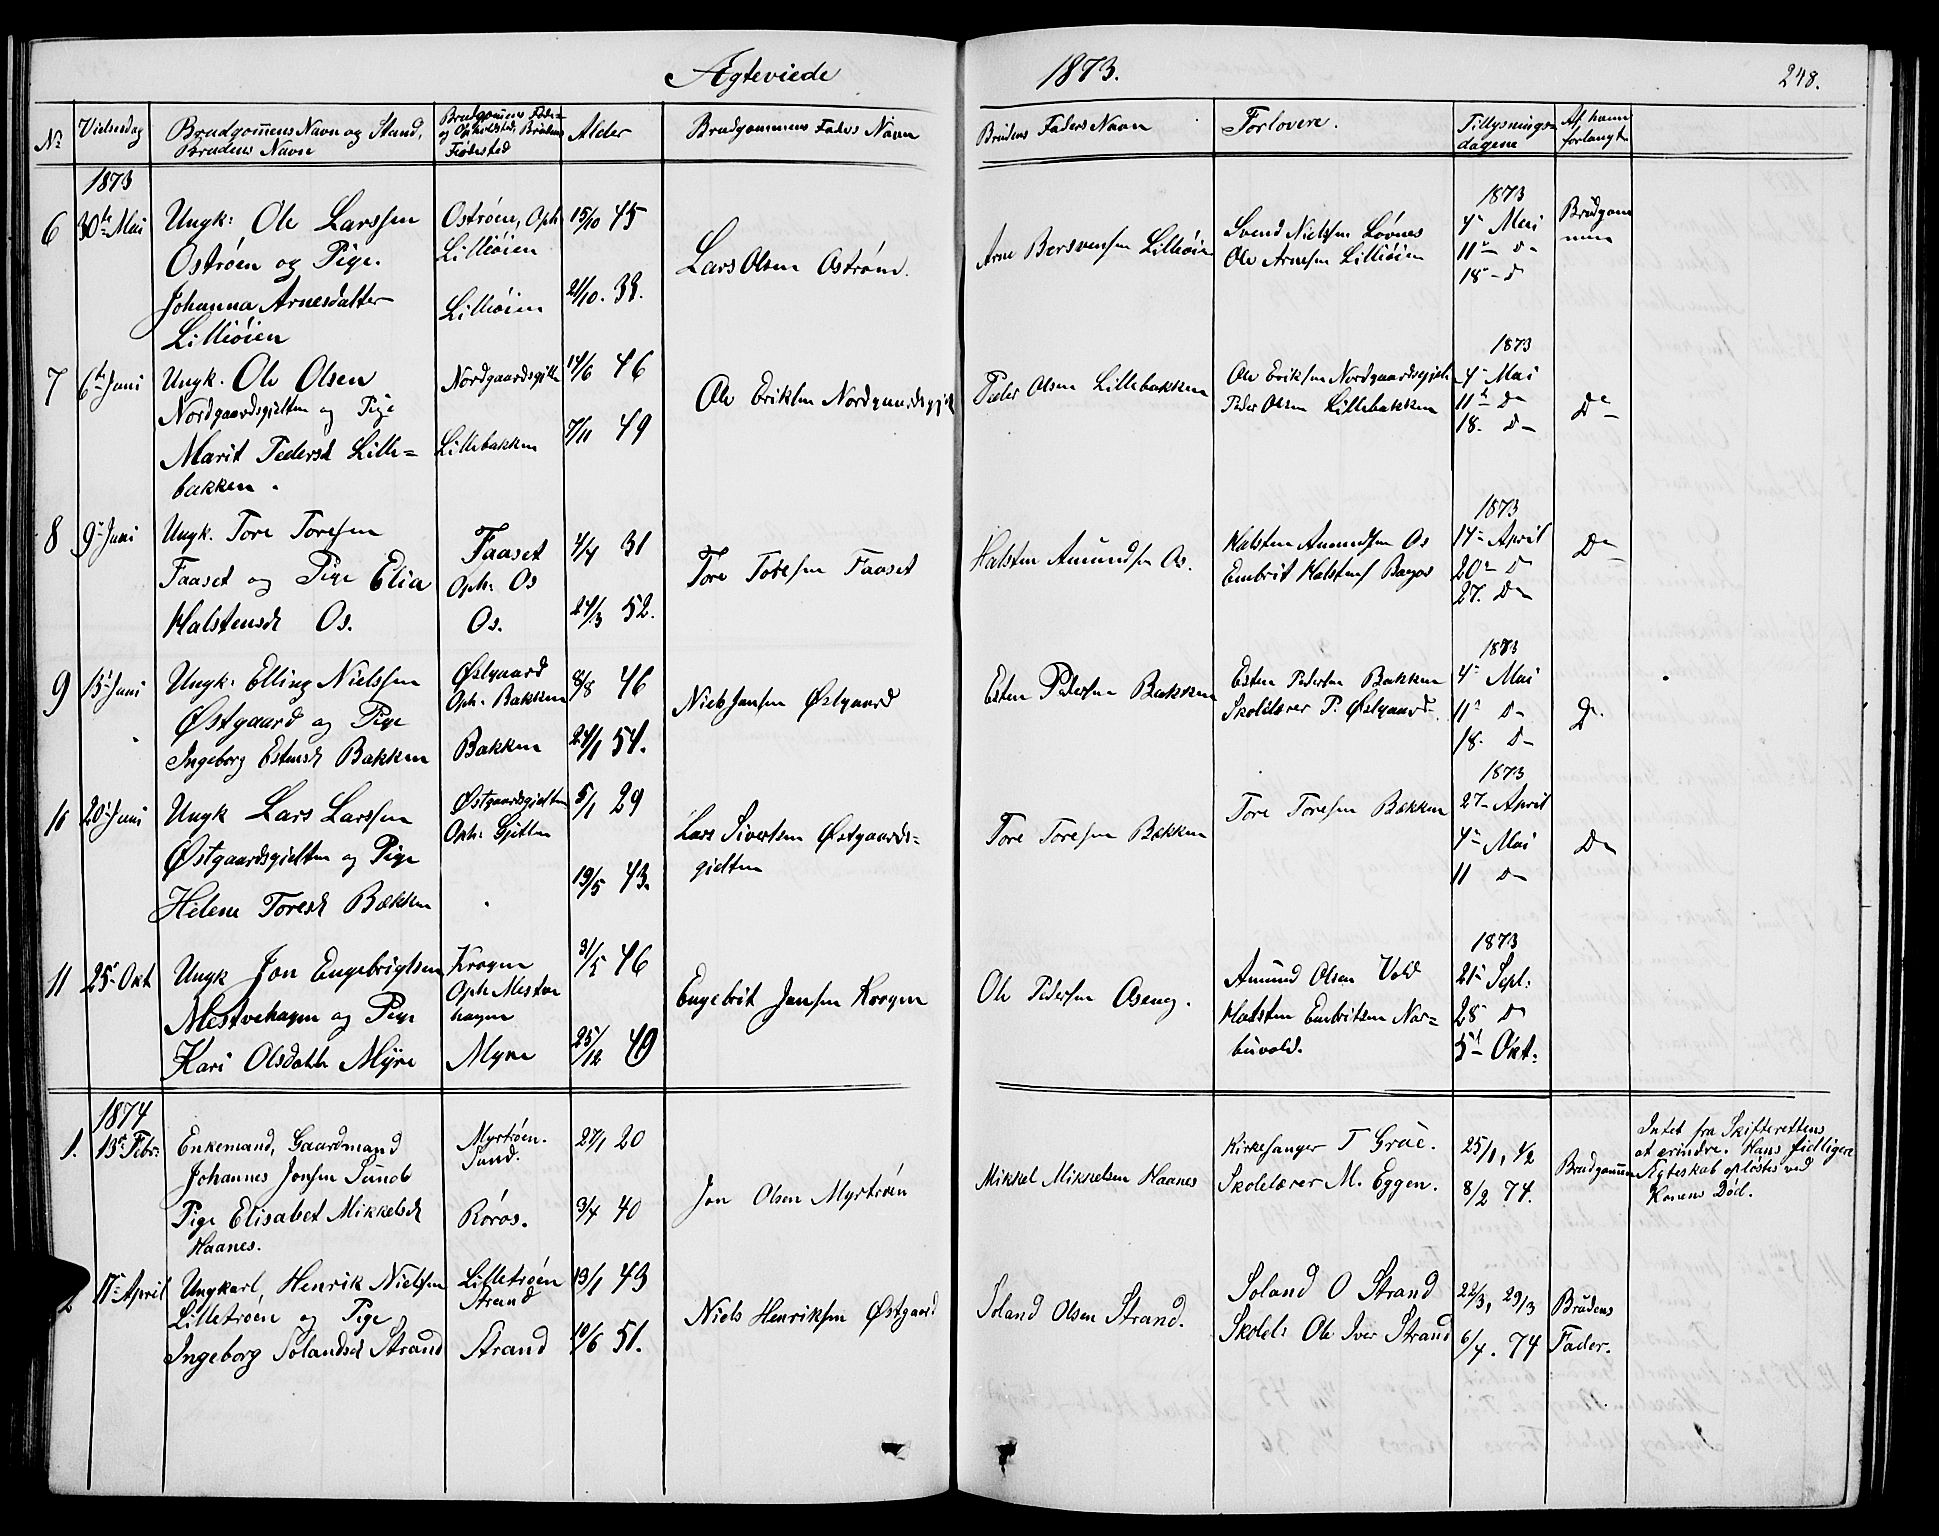 Ægteviede 1873. 248.
No Vielsesdag Brudgommens Navn og Stand, Brudens Navn
Brudgommens Føde- og Opholdsted, Brudens Fødested
Alder
Brudgommens Faders Navn
Brudens Faders Navn
Forlovere.
Tillysnings-
dagene
Af hvem
forlangt
1873
6 30te Mai Ungk: Ole Larssen
Ostrøen og Pige.
Johanna Arnesdatter
Lilleøien
Ostrøen, Oph
Lilleøien
Lilleøien
15/10 45
21/10. 38.
Lars Olsen Ostrøen.
Arne Bersvensen Lilleøien
Svend Nielsen Løvnes
Ole Arnesen Lilleøien
1873
4 Mai
11 D
18 - D
Brudgom
men
7 6te Juni Ungk. Ole Olsen
Nordgaardsgjelten og Pige
Marit Pedersd Lille=
bakken.
Nordgaardsgjelten
Lillebakken
14/6 46
7/11 49
Ole Eriksen Nordgaardsgjelt
Peder Olsen Lillebakken
Ole Eriksen Nordgaardsgjelt
Peder Olsen Lillebakken
1873
4 Mai
11 D
18. D
Do
8 9 Juni Ungk. Tore Toresen
Faaset og Pige Elia
Halstensd Os.
Faaset
Oph: Os
Os.
4/4 31
24/3 52.
Tore Toresen Faaset
Halsten Amundsen Os.
Halsten Amundsen Os
Embrit Halstens
1873
14 April
20 D
27. D
Do
9 13 Juni Ungk. Elling Nielssen
Østgaard og Pige
Ingeborg Estensd Bakken
Østgaard
Oph. Bakken
Bakken
8/8 46
24/1 51.
Niels Jensen Østgaard
Esten Pedersen Bakken
Esten Pedersen Bakken
Skolelærer P. Østgaard
1873
4 Mai
11 D
18. D
Do
10 20 Juni Ungk Lars Larssen
Østgaardsgjelten og Pige
Helene Toresd Bækken
Østgaardsgjelten
Oph: Gjelten
5/1 29
19/5 43.
Lars Sivertsen Østgaards=
gjelten
Tore Toresen Bækken
Tore Toresen Bækken
1873
27 April
4 Mai
11 D
Do
11 25 Okt Ungk Jon Engebrigtsen
Mestvehagen og Pige
Kari Olsdatter Myre
Krogen
Oph Mestve
hagen
Myre
31/5 46
25/12 49
Engebrit Jonsen Krogen
Ole Pedersen Aaseng.
Amund Olsen Vold
Halsten Embritsen Nar=
buvold.
1873
21 Sept:
28 D
5 Okt:
1874
1. 13de Febr: Enkemand, Gaardmand
Johannes Jonsen Sundb
Pige Elisabet Mikkelsd
Haanes.
Myrtrøen.
Sund.
Røros.
27/1 20
3/4 40
Jon Olsen Myrtrøen
Mikkel Mikkelsen Haanes
Kirkesanger T Grue.
Skolelærer M. Eggen.
25/1, 1/2
8/2 74.
Brudgommen
Intet fra Skifteretten
at erindre. Hans tidligere
Ægteskab opløstes ved
Konens Død.
2 17 April Ungkarl, Henrik Nielsen
Lilletrøen og Pige
Ingeborg Solandsd Strand
Lilletrøen
Strand
Strand
13/1 43
10/6 51.
Niels Henriksen Østgaard
Soland Olsen Strand.
Soland O Strand
Skolel: Ole Iver Strand
22/3, 29/3
6/4. 74
Brudens
Fader.